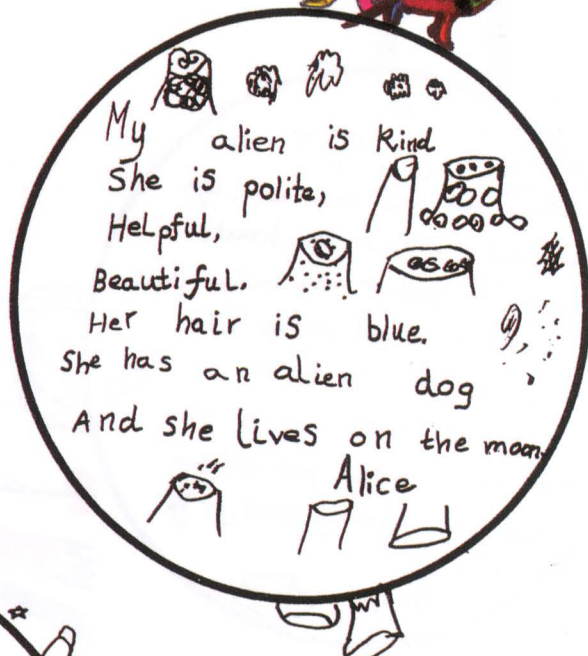 My alien is kind
She is polite,
Helpful,
Beautiful.
Her hair is blue.
She has an alien dog
And she lives on the moon.
Alice